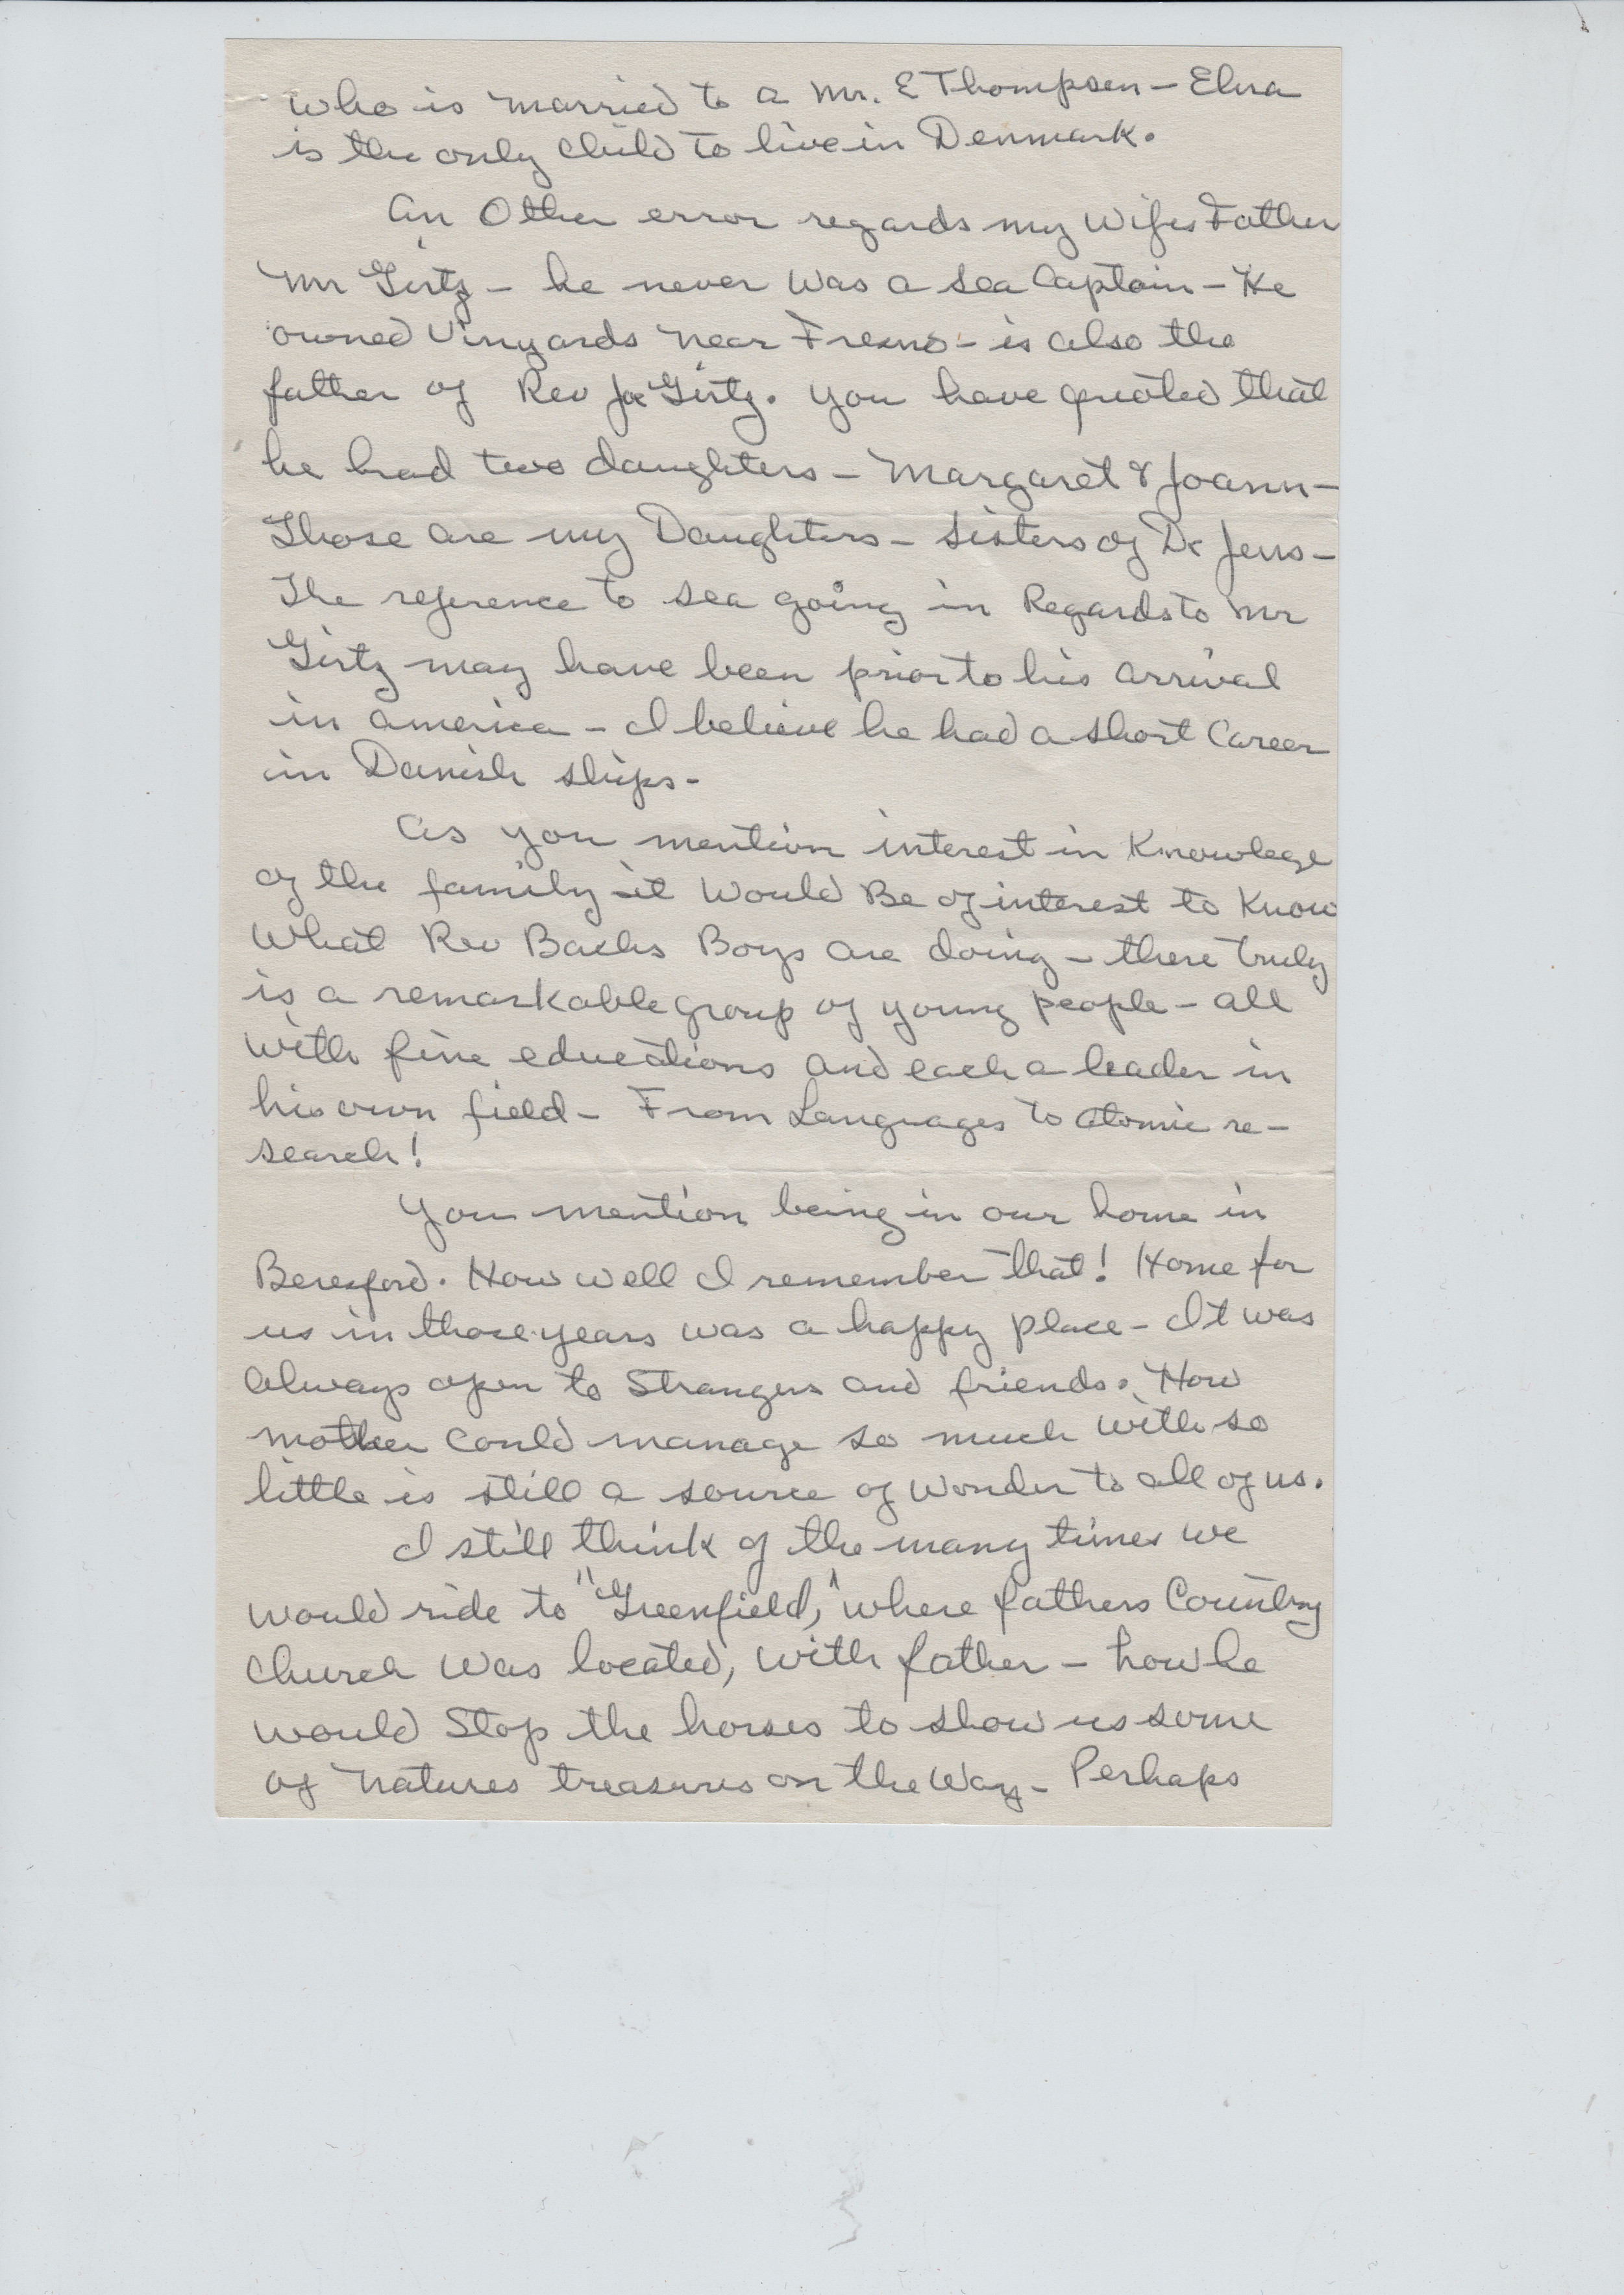 who is married to a Mr. E Thompsen - Elna
is the only child to live in Denmark.
An Other error regards my Wifes Father
Mr Girtz - he never was a sea Captain - He
owned Vinyards near Fresno - is also the
father of Rev Joe Girtz. You have quoted that
he had two daughters - Margaret & Joann -
Those are my Daughters - sisters of Dr Jens -
The reference to sea going in Regards to Mr
Girtz may have been prior to his arrival
in America - I believe he had a short Career
in Danish ships -
As you mention interest in Knowlege
of the family - it Would Be of interest to Know
What Rev Bachs Boys are doing - there truly
is a remarkable group of young people - all
with fine educations and each a leader in
his own field - From Languages to Atomic re-
search!
You mention being in our home in
Beresford. How well I remember that! Home for
us in those years was a happy place - It was
Always open to Strangers and friends. How
mother could manage so much with so
little is still a source of wonder to all of us.
I still think of the many times we
would ride to "Greenfield," where fathers Country
Church Was located, with father - how he
would Stop the horses to show us some
of Natures treasures on the Way - Perhaps